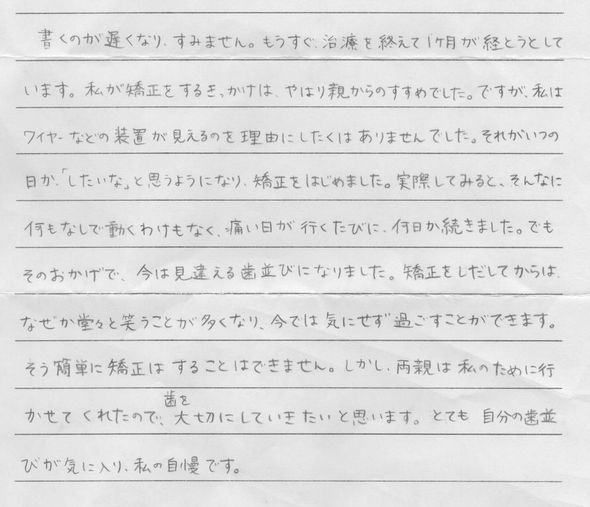 書くのが遅くなり、すみません。もうすぐ、治療を終えて1ヶ月が経とうとして
います。私が矯正をするきっかけは、やはり親からのすすめでした。ですが、私は
ワイヤーなどの装置が見えるのを理由にしたくはありませんでした。それがいつの
日か、「したいな」と思うようになり、矯正をはじめました。実際してみると、そんなに
何もなしで動くわけもなく、痛い日が行くたびに、何日か続きました。でも
そのおかげで、今は見違える歯並びになりました。矯正をしだしてからは、
なぜか堂々と笑うことが多くなり、今では気にせず過ごすことができます。
そう簡単に矯正はすることはできません。しかし、両親は私のために行
かせてくれたので、歯を大切にしていきたいと思います。とても自分の歯並
びが気に入り、私の自慢です。